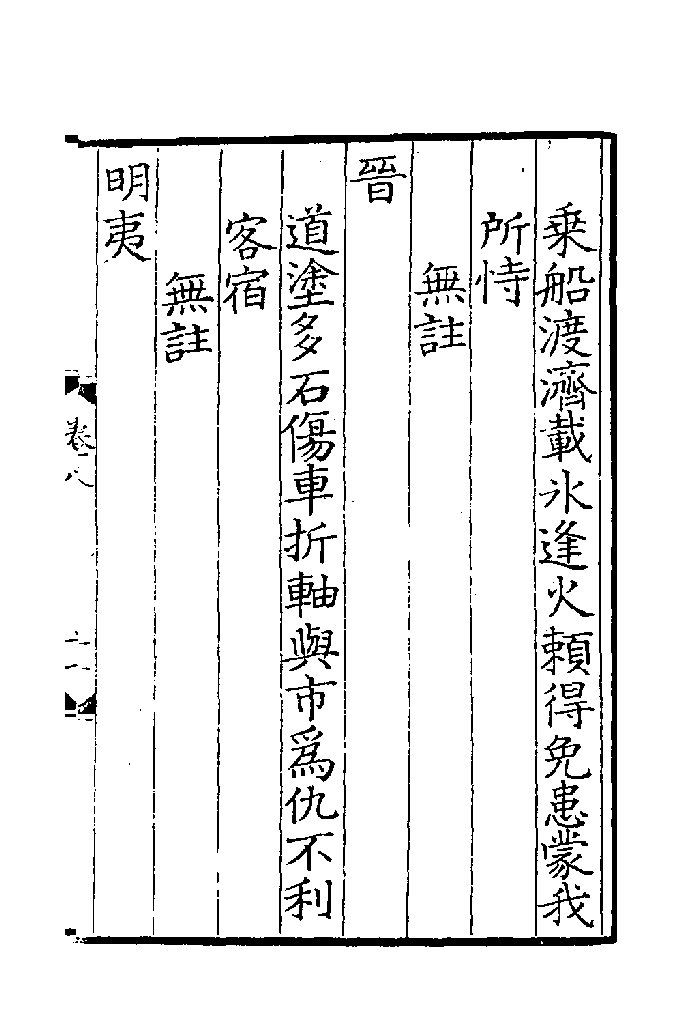 乗船渡濟載氷逢火頼得免患蒙我
所恃
無註
晉
道塗多石傷車折軸與市爲仇不利
客宿
無註
明夷
卷八
十一